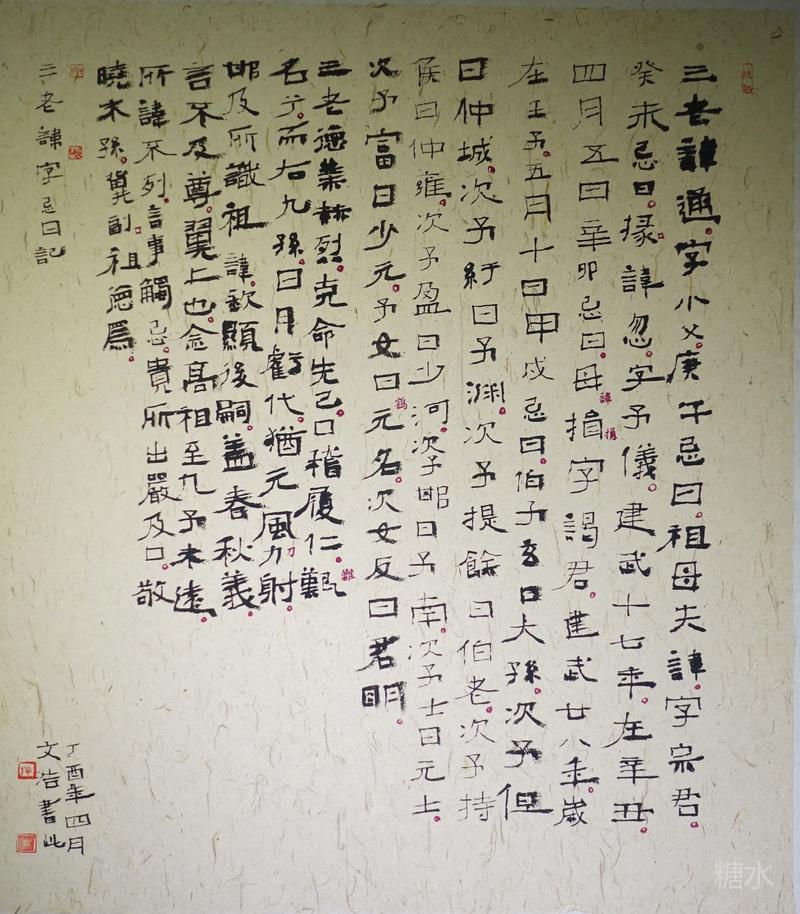 三老諱通。字小父。庚午忌日。祖母失諱。字宗君。
癸未忌日。掾諱忽。字子儀。建武十七年。在辛丑。
四月五日辛卯忌日。母捐字謁君。建武廿八年。歲
諱
捐
在壬子。五月十日甲戌忌日。伯子玄曰大孫。次子但
曰仲城。次子紆曰子淵。次子提餘曰伯老。次子持
侯曰仲雍。次子盈曰少河。次子邯曰子南。次子士曰元士。
次子富曰少元。子女曰元名。次女反曰君明。
三老德業赫烈。克命先己。口稽履仁。難
難
名兮。而右九孫。日月虧代。猶元風力射。
力
邯及所識祖諱欽顯後嗣。蓋春秋義。
言不及尊。翼上也。念高祖至九子未遠。
所諱不列。言事觸忌。貴所出嚴及口。敬
曉末孫。冀副祖德焉。
三老諱字忌日記
丁酉年四月
文浩書此
糖水